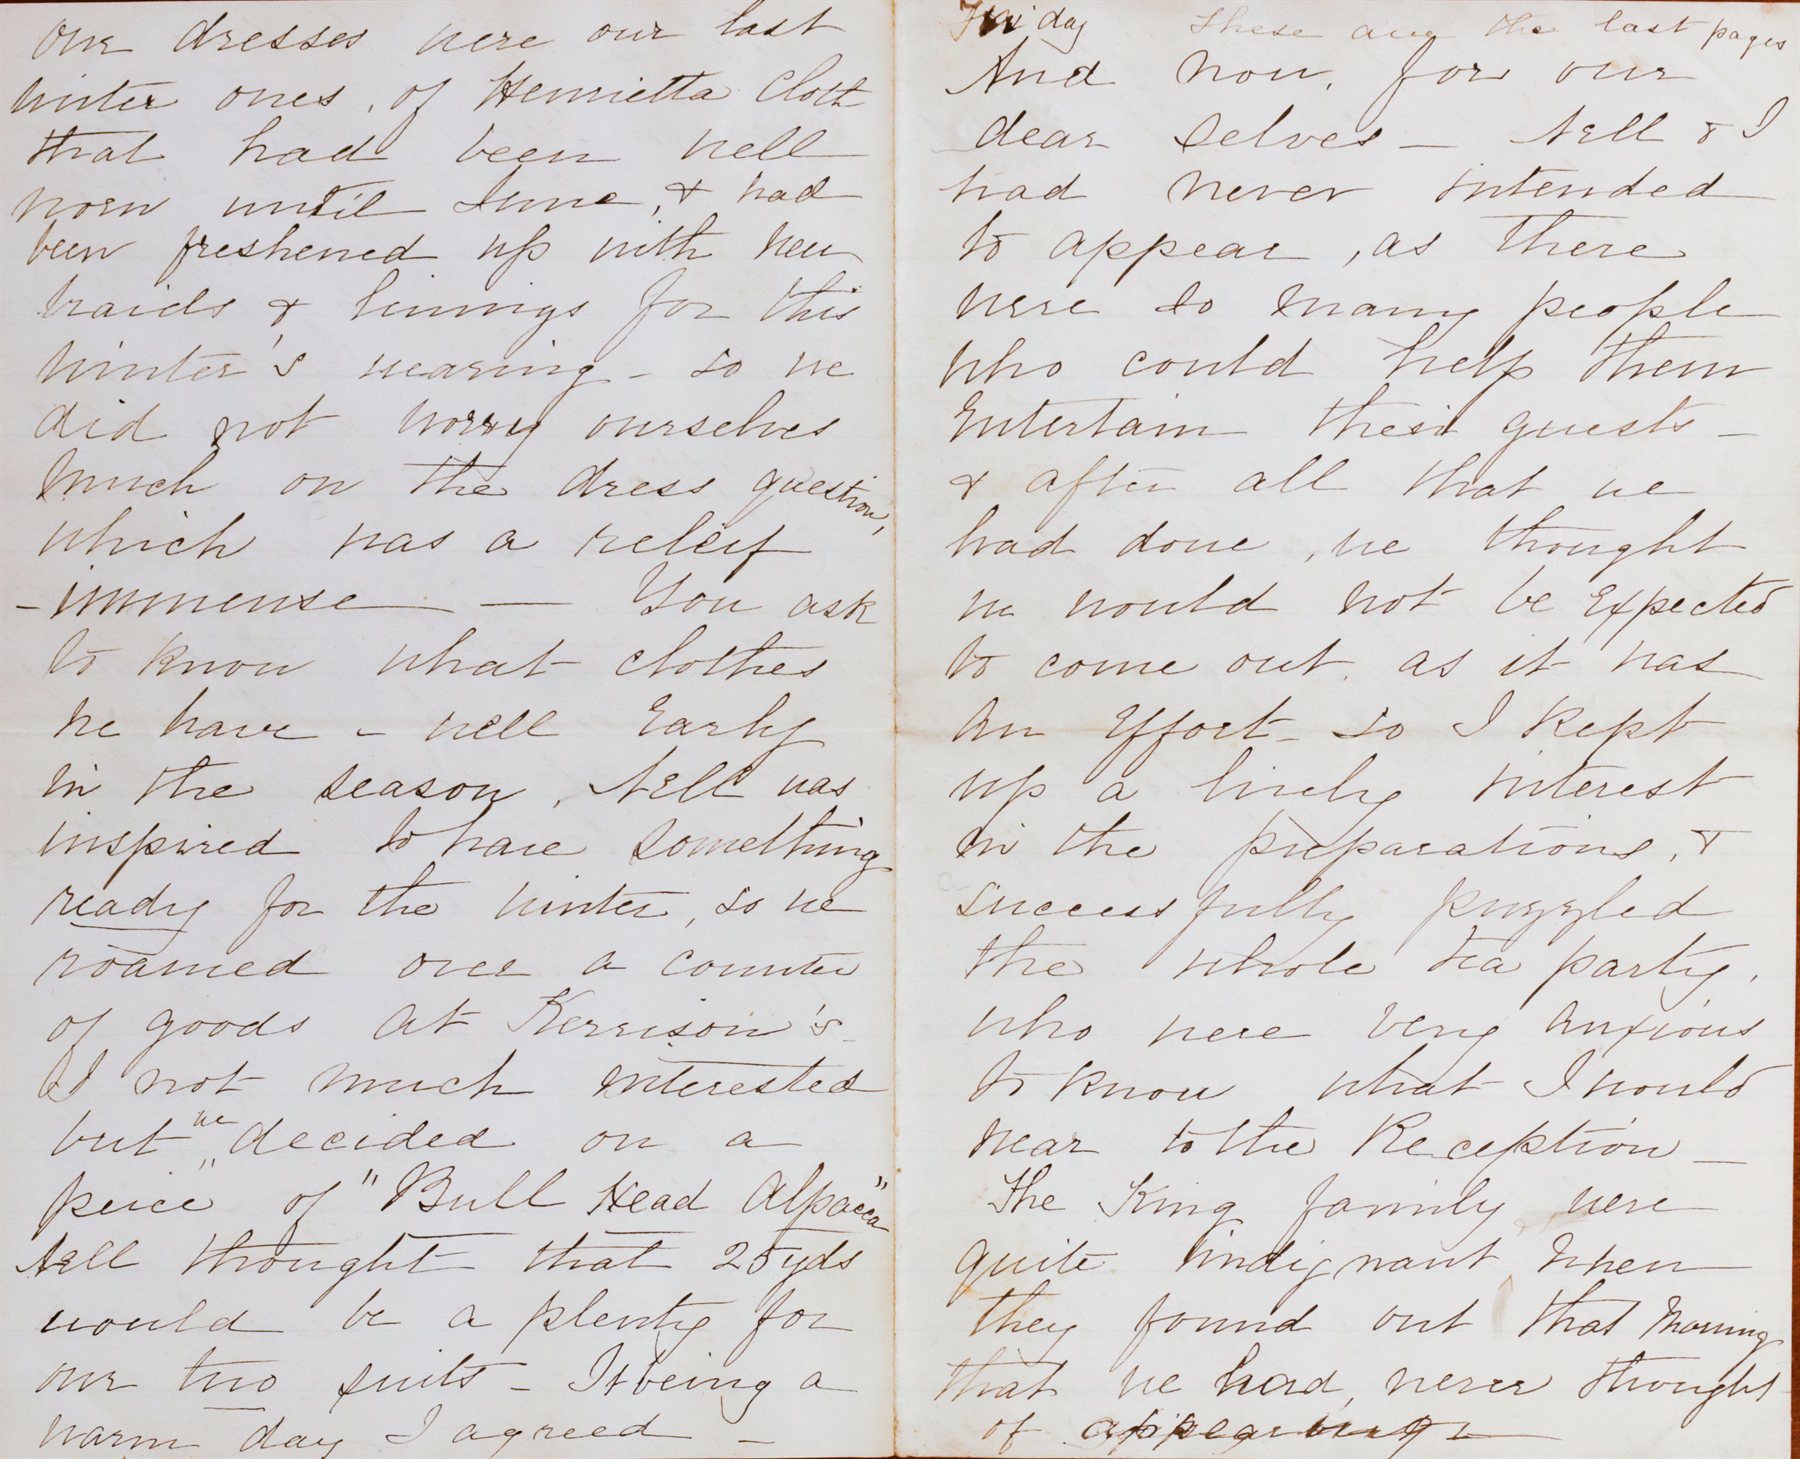 our dresses were our last
winter ones, of Henrietta Cloth
that had been well
worn until June, & had
been freshened up with new
braids & linings for this
winter's wearing - so we
did not worry ourselves
much on the dress question,
which was a releif
- immense — You ask
to know what clothes
we have - well Early
in the season, Nell was
inspired to have something
ready for the winter, so we
roamed over a counter
of goods at Kerrison's
I not much interested
but we decided on a
"peice" of "Bull Head Alpacca"
Nell thought that 25 yds
would be a plenty for
our two suits - It being a
warm day I agreed -
Friday These are the last pages
And now, for our
dear selves - Nell & I
had never intended
to appear, as there
were so many people
who could help them
Entertain their guests -
& after all that we
had done, we thought
we would not be Expected
to come out, as it was
an Effort - so I kept
up a lively interest
in the preparations, &
successfully puzzled
the whole tea party,
who were very anxious
to know what I would
wear to the Reception -
The King family were
quite indignant when
they found out that morning
that we had never thought
of appearing -